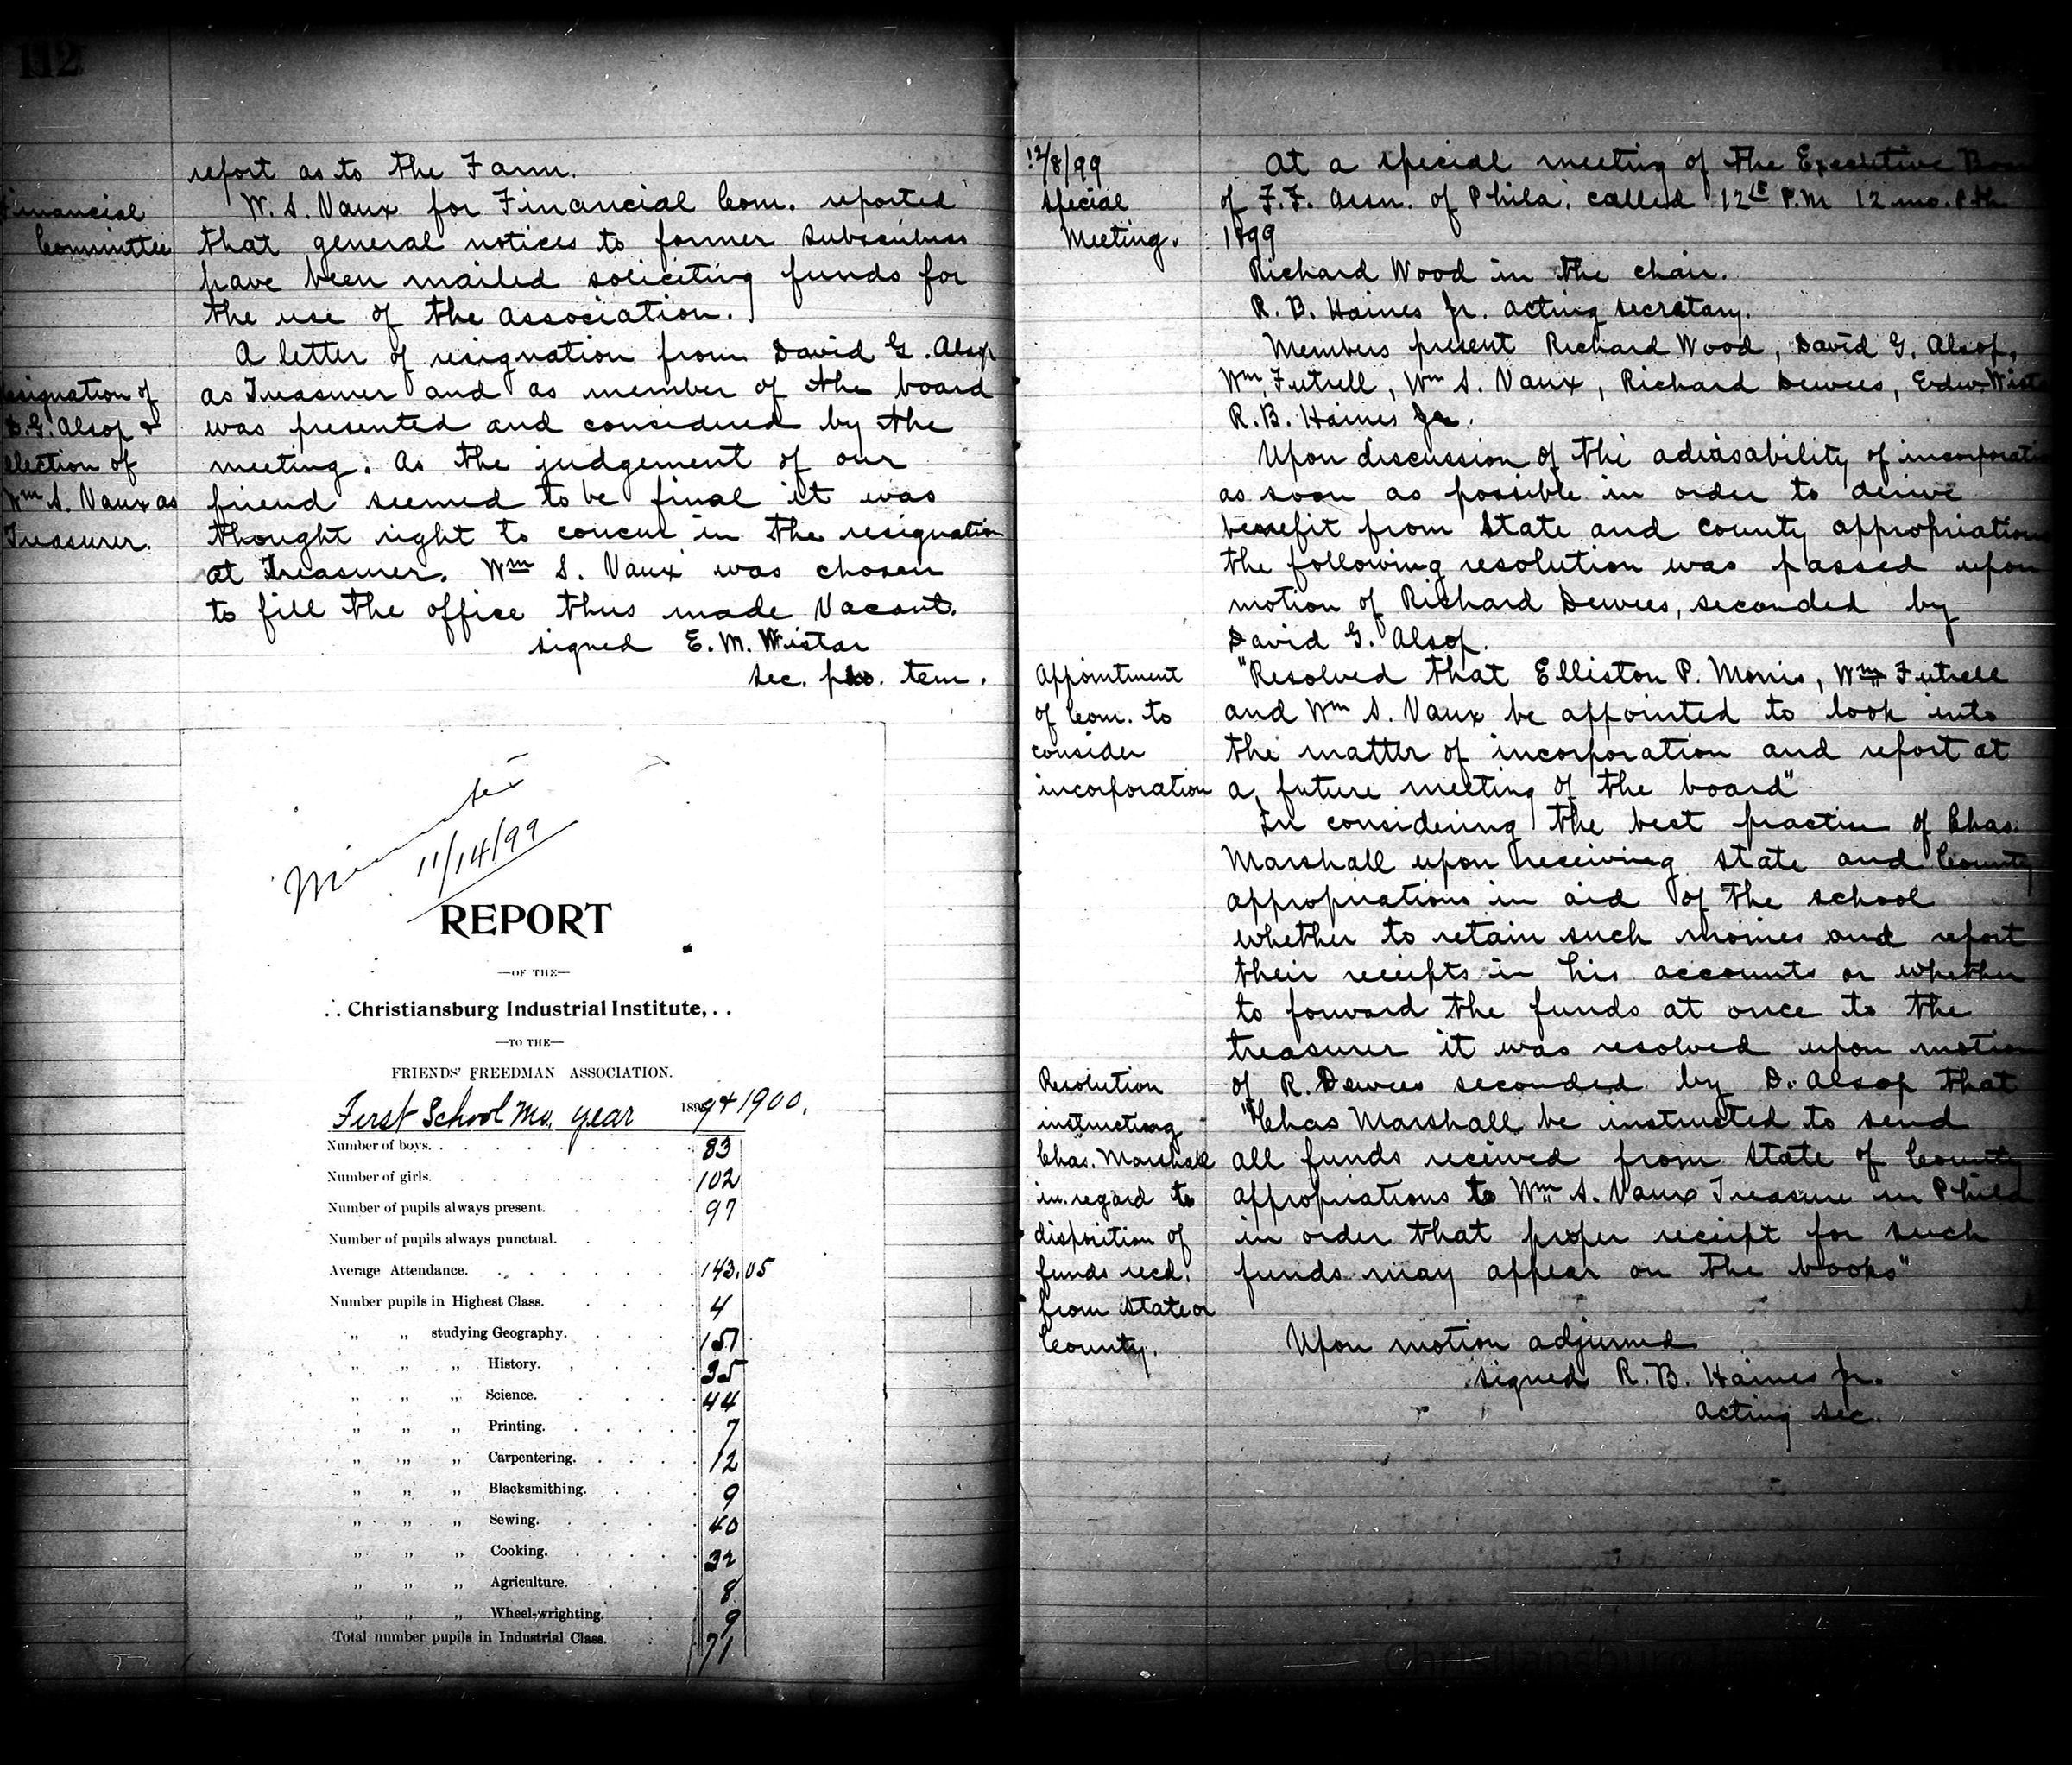 112
report as to the Farm.
Financial
Committee
W. S. Vaux for Financial Com. reported
that general notices to former subscribers
have been mailed soliciting funds for
the use of the association.
A letter of resignation from David G. Alsop
as Treasurer and as member of the board
was presented and considered by the
meeting. As the judgement of our
friend seemed to be final it was
thought right to concur in the resignation
at Treasurer. Wm S. Vaux was chosen
to fill the office thus made vacant.
resignation of
D.G. Alsop &
election of
Wm S. Vaux as
Treasurer.
signed E. M. Wistar
sec. pro. tem.
Minutes
11/14/99
REPORT
—OF THE—
. . Christiansburg Industrial Institute, . .
—TO THE—
FRIENDS' FREEDMAN ASSOCIATION.
First School Mo. year 1899 + 1900.
Number of boys. 83
Number of girls. 102
Number of pupils always present. 97
Number of pupils always punctual.
Average Attendance. 143.05
Number pupils in Highest Class. 4
" " studying Geography. 151
" " " History. 35
" " " Science. 44
" " " Printing. 7
" " " Carpentering. 12
" " " Blacksmithing. 9
" " " Sewing. 40
" " " Cooking. 32
" " " Agriculture. 8
" " " Wheel-wrighting. 9
Total number pupils in Industrial Class. 71
12/8/99
Special
Meeting.
At a special meeting of the Executive
of F.F. Assn. of Phila. called 12 15 P.M. 12 mo. 8th
1899
Richard Wood in the chair.
R. B. Haines Jr. acting secretary.
Members present Richard Wood, David G. Alsop,
Wm. Futrell, Wm S. Vaux, Richard Dewees, Edw. Wistar
R. B. Haines Jr.
Upon discussion of the advisability of incorporation
as soon as possible in order to derive
benefit from State and County appropriations
the following resolution was passed upon
motion of Richard Dewees, seconded by
David G. Alsop.
Appointment
of Com. to
consider
incorporation
"Resolved that Elliston P. Morris, Wm Futrell
and Wm S. Vaux be appointed to look into
the matter of incorporation and report at
a future meeting of the board"
In considering the best practice of Chas.
Marshall upon receiving State and County
appropriations in aid of the school
whether to retain such monies and report
their receipts in his accounts or whether
to forward the funds at once to the
treasurer it was resolved upon motion
of R. Dewees seconded by D. Alsop that
"Chas Marshall be instructed to send
all funds received from State of County
appropriations to Wm S. Vaux Treasure in Phila
in order that proper receipt for such
funds may appear on the books"
Resolution
instructing
Chas. Marshall
in regard to
disposition of
funds recd.
from State or
County.
Upon motion adjurned
signed R. B. Haines Jr.
acting sec.